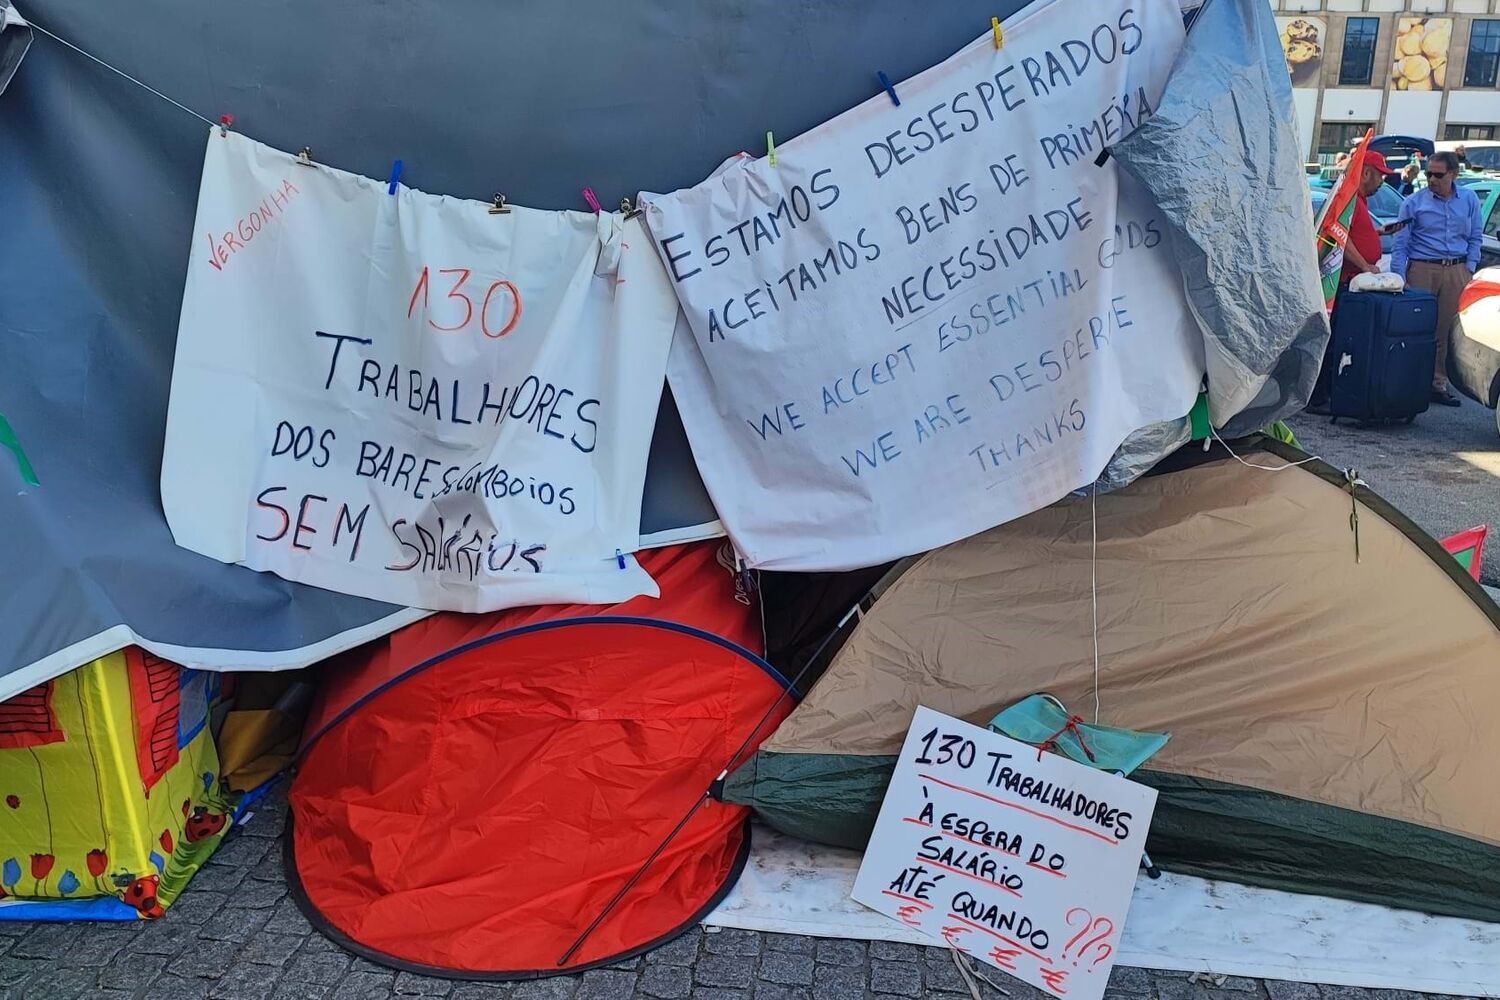 VERGONHA
130
TRABALHDORES
DOS BARES COMBOIOS
SEM SALÁRIOS
ESTAMOS DESESPERADOS
ACEITAMOS BENS DE PRIMEIRA
NECESSIDADE
WE ACCEPT ESSENTIAL GOODS
WE ARE DESPERIE
THANKS
130 TRABALHADORES
À ESPERA DO
SALÁRIO
ATÉ QUANDO ???
€ € € €